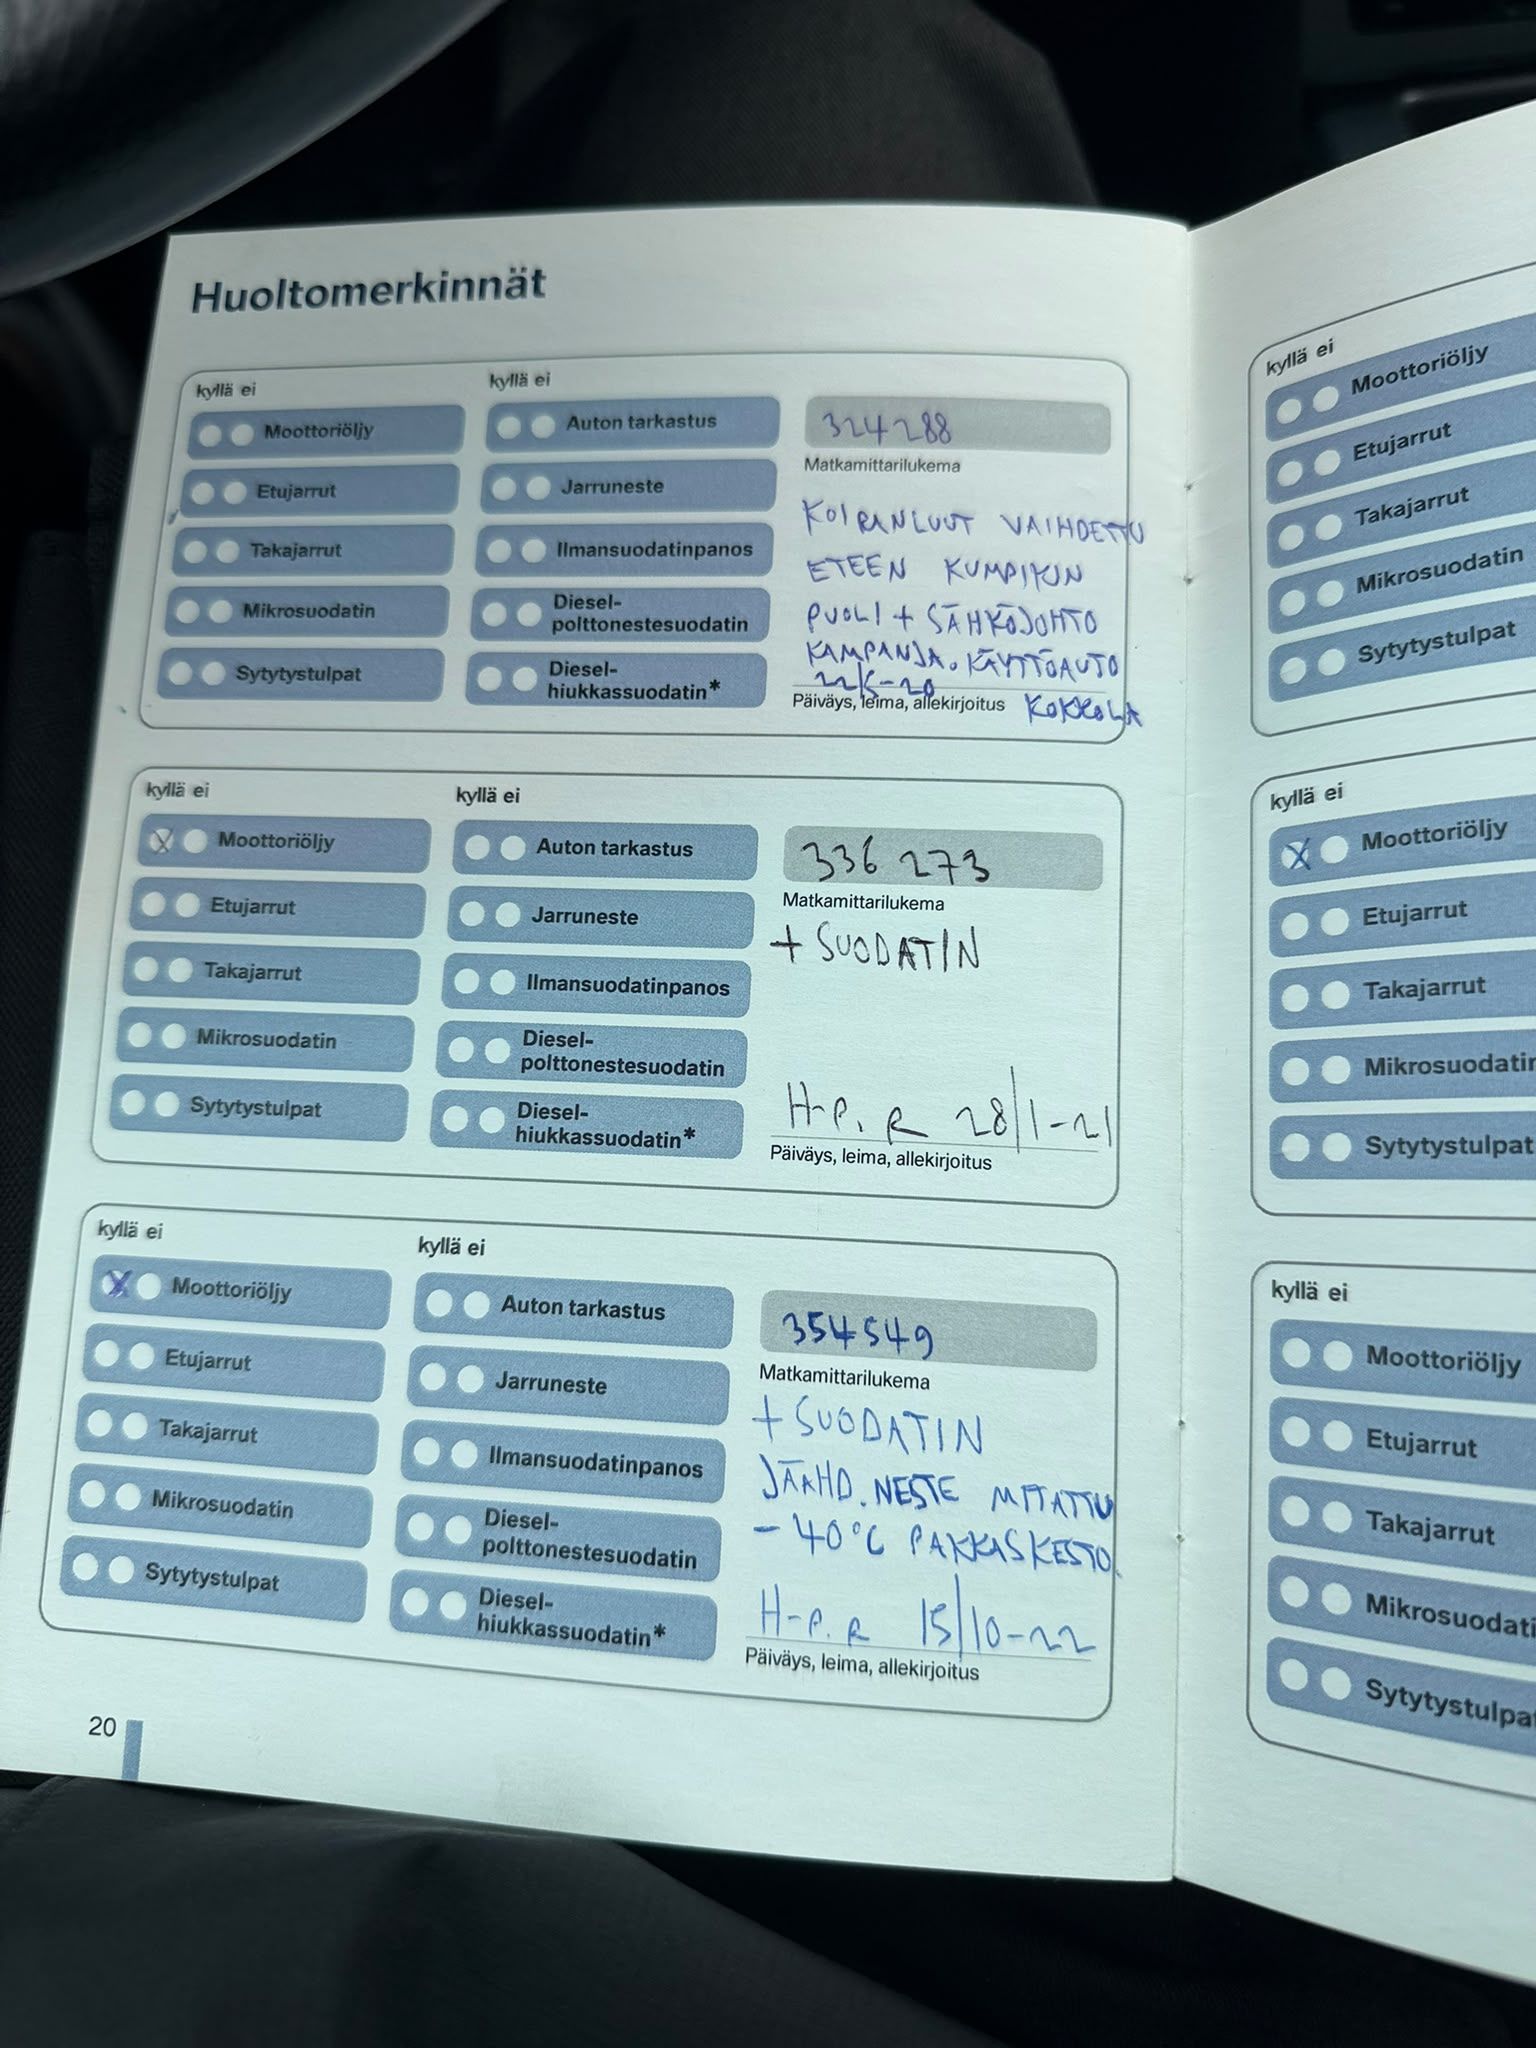 Huoltomerkinnät
kyllä ei
kyllä ei
Moottoriöljy
Auton tarkastus
324288
Matkamittarilukema
Etujarrut
Jarruneste
KOIRANLUUT VAIHDETTU
Takajarrut
Ilmansuodatinpanos
ETEEN KUMPIKIN
Mikrosuodatin
Diesel-
polttonestesuodatin
PUOLI + SÄHKÖJOHTO
Sytytystulpat
Diesel-
hiukkassuodatin*
KAMPANJA. KÄYTTÖAUTO
22/5-20
Päiväys, leima, allekirjoitus
KOKKOLA
kyllä ei
kyllä ei
Moottoriöljy
Auton tarkastus
336 273
Matkamittarilukema
Etujarrut
Jarruneste
+ SUODATIN
Takajarrut
Ilmansuodatinpanos
Mikrosuodatin
Diesel-
polttonestesuodatin
Sytytystulpat
Diesel-
hiukkassuodatin*
H-P. R 28/1-21
Päiväys, leima, allekirjoitus
kyllä ei
kyllä ei
Moottoriöljy
Auton tarkastus
354549
Matkamittarilukema
Etujarrut
Jarruneste
+ SUODATIN
Takajarrut
Ilmansuodatinpanos
JÄÄHD. NESTE MITATTU
Mikrosuodatin
Diesel-
polttonestesuodatin
-40°C PAKKASKESTO.
Sytytystulpat
Diesel-
hiukkassuodatin*
H-P. R 15/10-22
Päiväys, leima, allekirjoitus
20
kyllä ei
Moottoriöljy
Etujarrut
Takajarrut
Mikrosuodatin
Sytytystulpat
kyllä ei
Moottoriöljy
Etujarrut
Takajarrut
Mikrosuodatin
Sytytystulpat
kyllä ei
Moottoriöljy
Etujarrut
Takajarrut
Mikrosuodati
Sytytystulpa